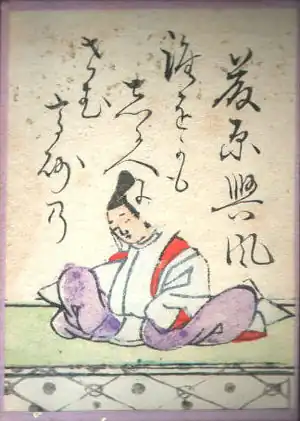 藤原興風
誰をかも
志る人に
せむ
高砂乃